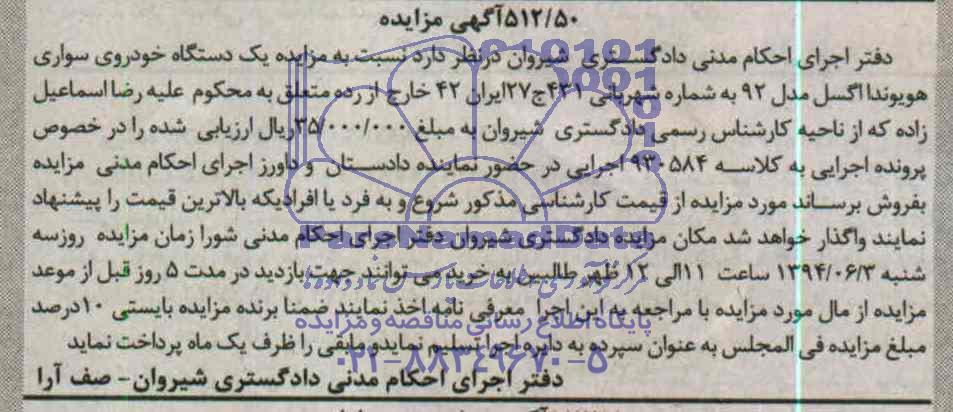 ۵۱۲/۵۰آگهی مزایده
دفتر اجرای احکام مدنی دادگستری شیروان درنظر دارد نسبت به مزایده یک دستگاه خودروی سواری
هویوندا اکسل مدل ۹۲ به شماره شهربانی ۴۳۱ج۲۷ایران ۴۲ خارج از رده متعلق به محکوم علیه رضا اسماعیل
زاده که از ناحیه کارشناس رسمی دادگستری شیروان به مبلغ ۳۵/۰۰۰/۰۰۰ریال ارزیابی شده را در خصوص
پرونده اجرایی به کلاسه ۹۳۰۵۸۴ اجرایی در حضور نماینده دادستان و داورز اجرای احکام مدنی مزایده
بفروش برساند مورد مزایده از قیمت کارشناسی مذکور شروع و به فرد یا افرادیکه بالاترین قیمت را پیشنهاد
نمایند واگذار خواهد شد مکان مزایده دادگستری شیروان دفتر اجرای احکام مدنی شورا زمان مزایده روزسه
شنبه ۱۳۹۴/۰۶/۳ ساعت ۱۱الی ۱۲ ظهر طالبین به خرید می توانند جهت بازدید در مدت ۵ روز قبل از موعد
مزایده از مال مورد مزایده با مراجعه به این اجرا معرفی نامه اخذ نمایند ضمنا برنده مزایده بایستی ۱۰درصد
مبلغ مزایده فی المجلس به عنوان سپرده به دایره اجرا تسلیم نمایدو مابقی را ظرف یک ماه پرداخت نماید
دفتر اجرای احکام مدنی دادگستری شیروان- صف آرا
پایگاه اطلاع رسانی مناقصه و مزایده
۰۲۱-۸۸۳۴۹۶۷۰-۵